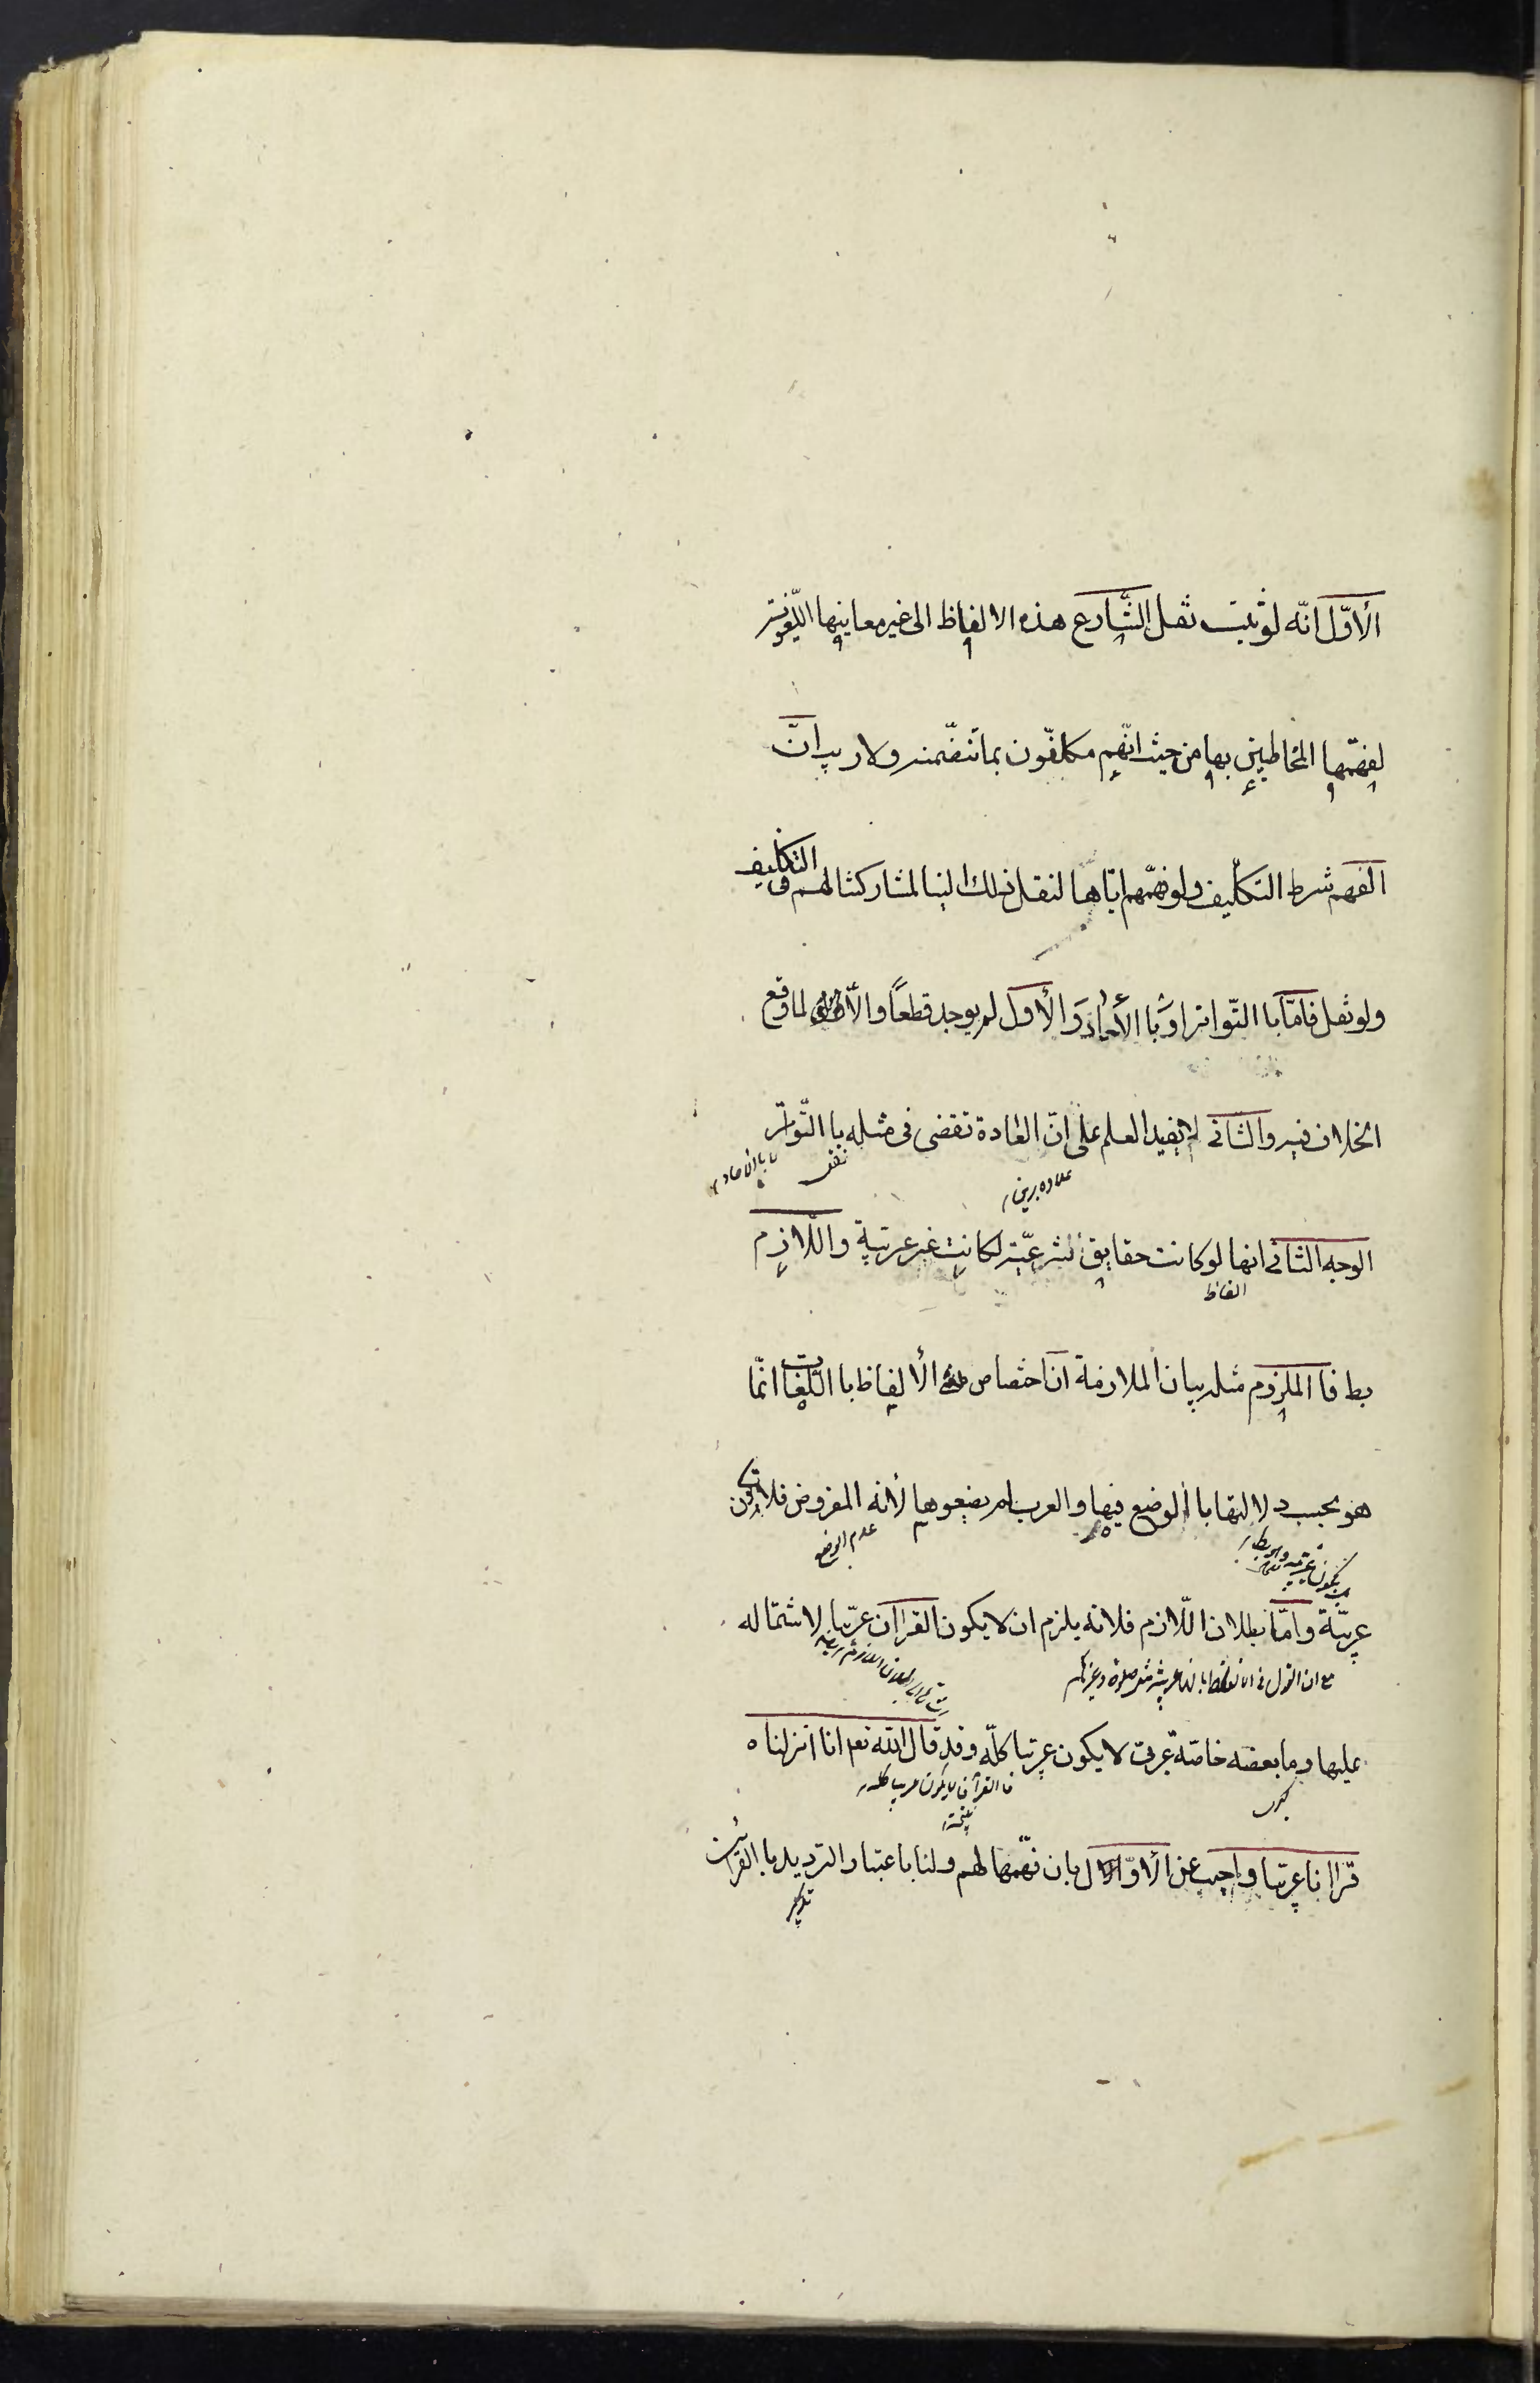 الأوّل انّه لو ثبت نقل الشّارع هذه الالفاظ الى غير معانيها اللّغوية
لفهّمها المخاطبين بها من حيث انّهم مكلّفون بما تتضّمنه ولا ريب انّ
الفهم شرط التكليف ولو فهّمهم ايّاها لنقل ذلك الينا لمشاركتنا لهم فى التكليف
ولو نقل فامّا با التّواتر او با الأحاد والأول لم يوجد قطعاً والّا لما وقع
الخلاف فيه والثانى لا يفيد العلم على انّ العادة تقضى فى مثله با التّواتر
نقل
الوجه الثانى انها لو كانت حقايق الشرعيّة لكانت غير عربية واللّازم
الفاظ
بط فا الملزوم مثله بيان الملازمة انّ اختصاص الألفاظ با اللّغات انّما
هو بحسب دلالتها با الوضع فيها والعرب لم يضعوها لأنه المفروض فلا تكون
عدم الوضع
عربيّة وامّا بطلان اللّازم فلانه يلزم ان لا يكون القران عربّيا لاشتماله
عليها وما بعضه خاصّة عربى لا يكون عربيا كلّه وقد قال الله تعم انا انزلناه
فا القرآن لا يكون عربيا كله
قرانا عربيا واجيب عن الأوّل بان فهّمها لهم ولنا باعتبار الترديد با القرائن